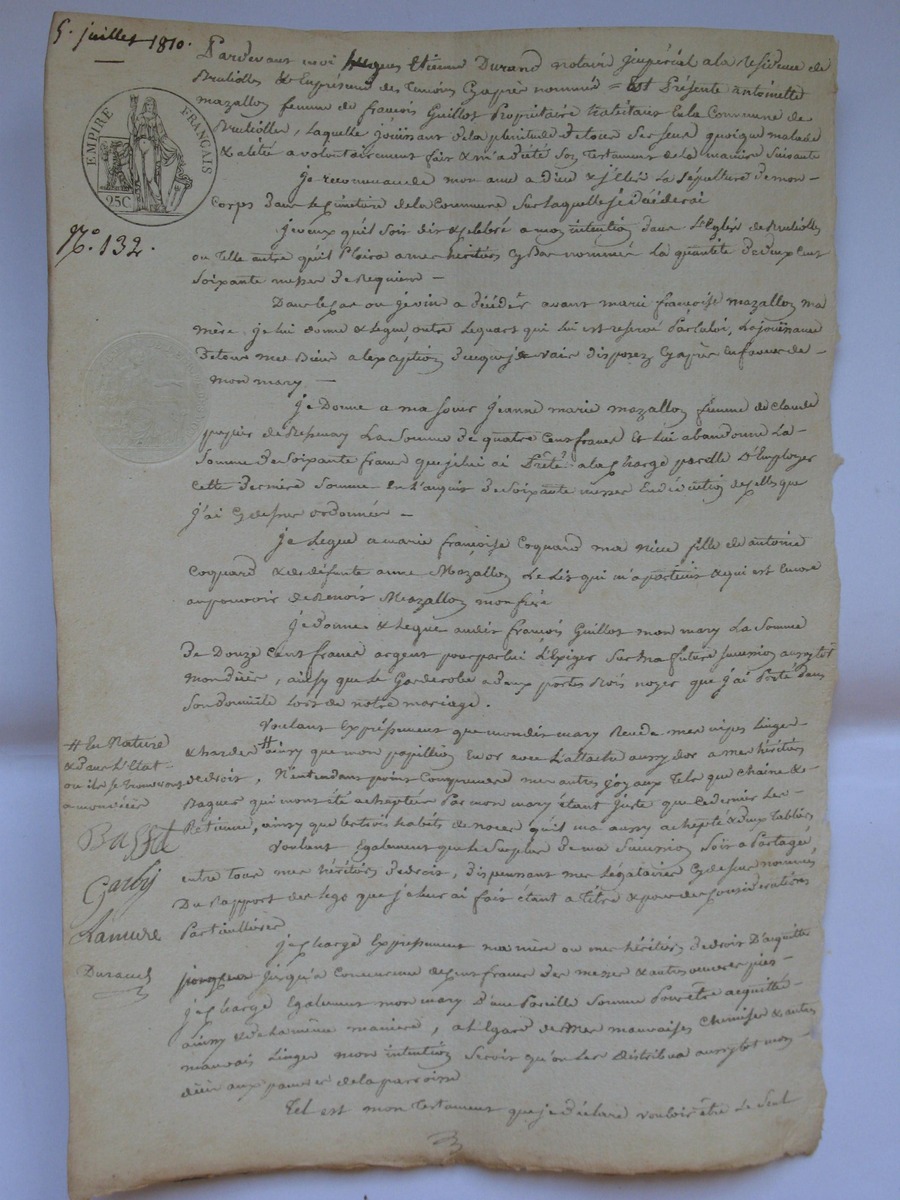 5. juillet 1810.
EMPIRE FRANÇAIS
25C
N.º 132.
Pardevant moi hugues Etienne Durand notaire jmpérial a la Residence de
Bruliolles & En présence des témoins Cyaprès nommés = Est Présente antoinette
mazallon femme de françois Guillot Propriétaire habitant En la Commune de
Brulioller, laquelle jouissant de la plenitude de tous Ses Sens quoique malade
& alité a volontairement fait & m'a dicté Son testament de la maniere Suivante
je recommande mon ame a dieu & j'Elis la Sépulture de mon
Corps dans le Cimetiere de la Commune Sur laquelle je décéderai
je veux qu'il Soit dit & Celébré a mon intention dans L'Eglise de Brulliolles
ou telle autre qu'il Plaira a mes héritiers Cy Bas nommés la quantité de deux Cent
Soixante messes de Requiem —
Dans le Cas ou je vins a décéder avant marie françoise mazallon ma
mère, je lui donne & Legue, outre le quart qui lui est reservé Par la loi, La jouissance
De tous mes Biens a l'exception de ce que je vais disposer Cyaprès En faveur de
mon mary —
je Donne a ma Soeur jeanne marie mazallon femme de Claude
de La Somme de quatre Cent francs Et lui abandonne La
Somme de Soixante francs que je lui ai Prêté a la Charge par elle D'Employer
Cette derniere Somme En l'acquit de Soixante messes En déduction de Celles que
j'ai Cydessus ordonnées —
je Legue a marie françoise Coquard ma niece fille de antoine
Coquard & de défunte anne Mazallon Le Lit qui m'appartient & qui est Encore
au pouvoir de Benoit Mazallon mon frère
je donne & Legue audit françois Guillot mon mary La Somme
De Douze Cent francs argent pour par lui L'Exiger Sur ma future Succession aussytôt
mon décès, ainsy que Le Garderobe a deux portes Bois noyer que j'ai Porté dans
Son domicile Lors de notre mariage.
Voulant Expréssement que mondit mary Rende mes nipes Linges
& hardes # ainsy que mon papillon En or avec L'attache aussy d'or a mes héritiers
de droit, N'entendant point Comprendre mes autres joyaux Tels que chaine &
Bagues qui m'ont été achéptés Par mon mary étant juste que Ce dernier Les
Retienne, ainsy que les trois habits de noces qu'il m'a aussy achepté & deux Tabliers
Voulant Egalement que le Surplus de ma Succession Soit Partagé
entre tous mes héritiers de droit, dispensant mes Légataires Cydessus nommés
Du Rapport des legs que je leur ai fait étant a titre & pour des Considérations
Particulieres
je Charge Expressement ma mère ou mes héritiers de droit D'acquitter
jusqu'a Concurrence de Cent francs des messes & autres oeuvres pies
je Charge Egalement mon mary D'une Pareille Somme Pour être acquittée
ainsy & de la même maniere, a l'Egard de Mes mauvaises Chemises & autres
mauvais Linges mon intention Seroit qu'on Les Distribua aussytot mon
décès aux pauvres de la paroisse
Tel est mon Testament que je déclare vouloir être Le Seul
# En Nature
& dans L'Etat
ou ils se trouveront
a mon décès
Basset
Garby
Ramure
Durand